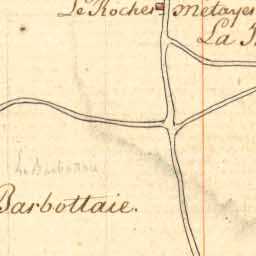 Le Rocher
Metaye
La
La Barbottaie
Barbottaie.